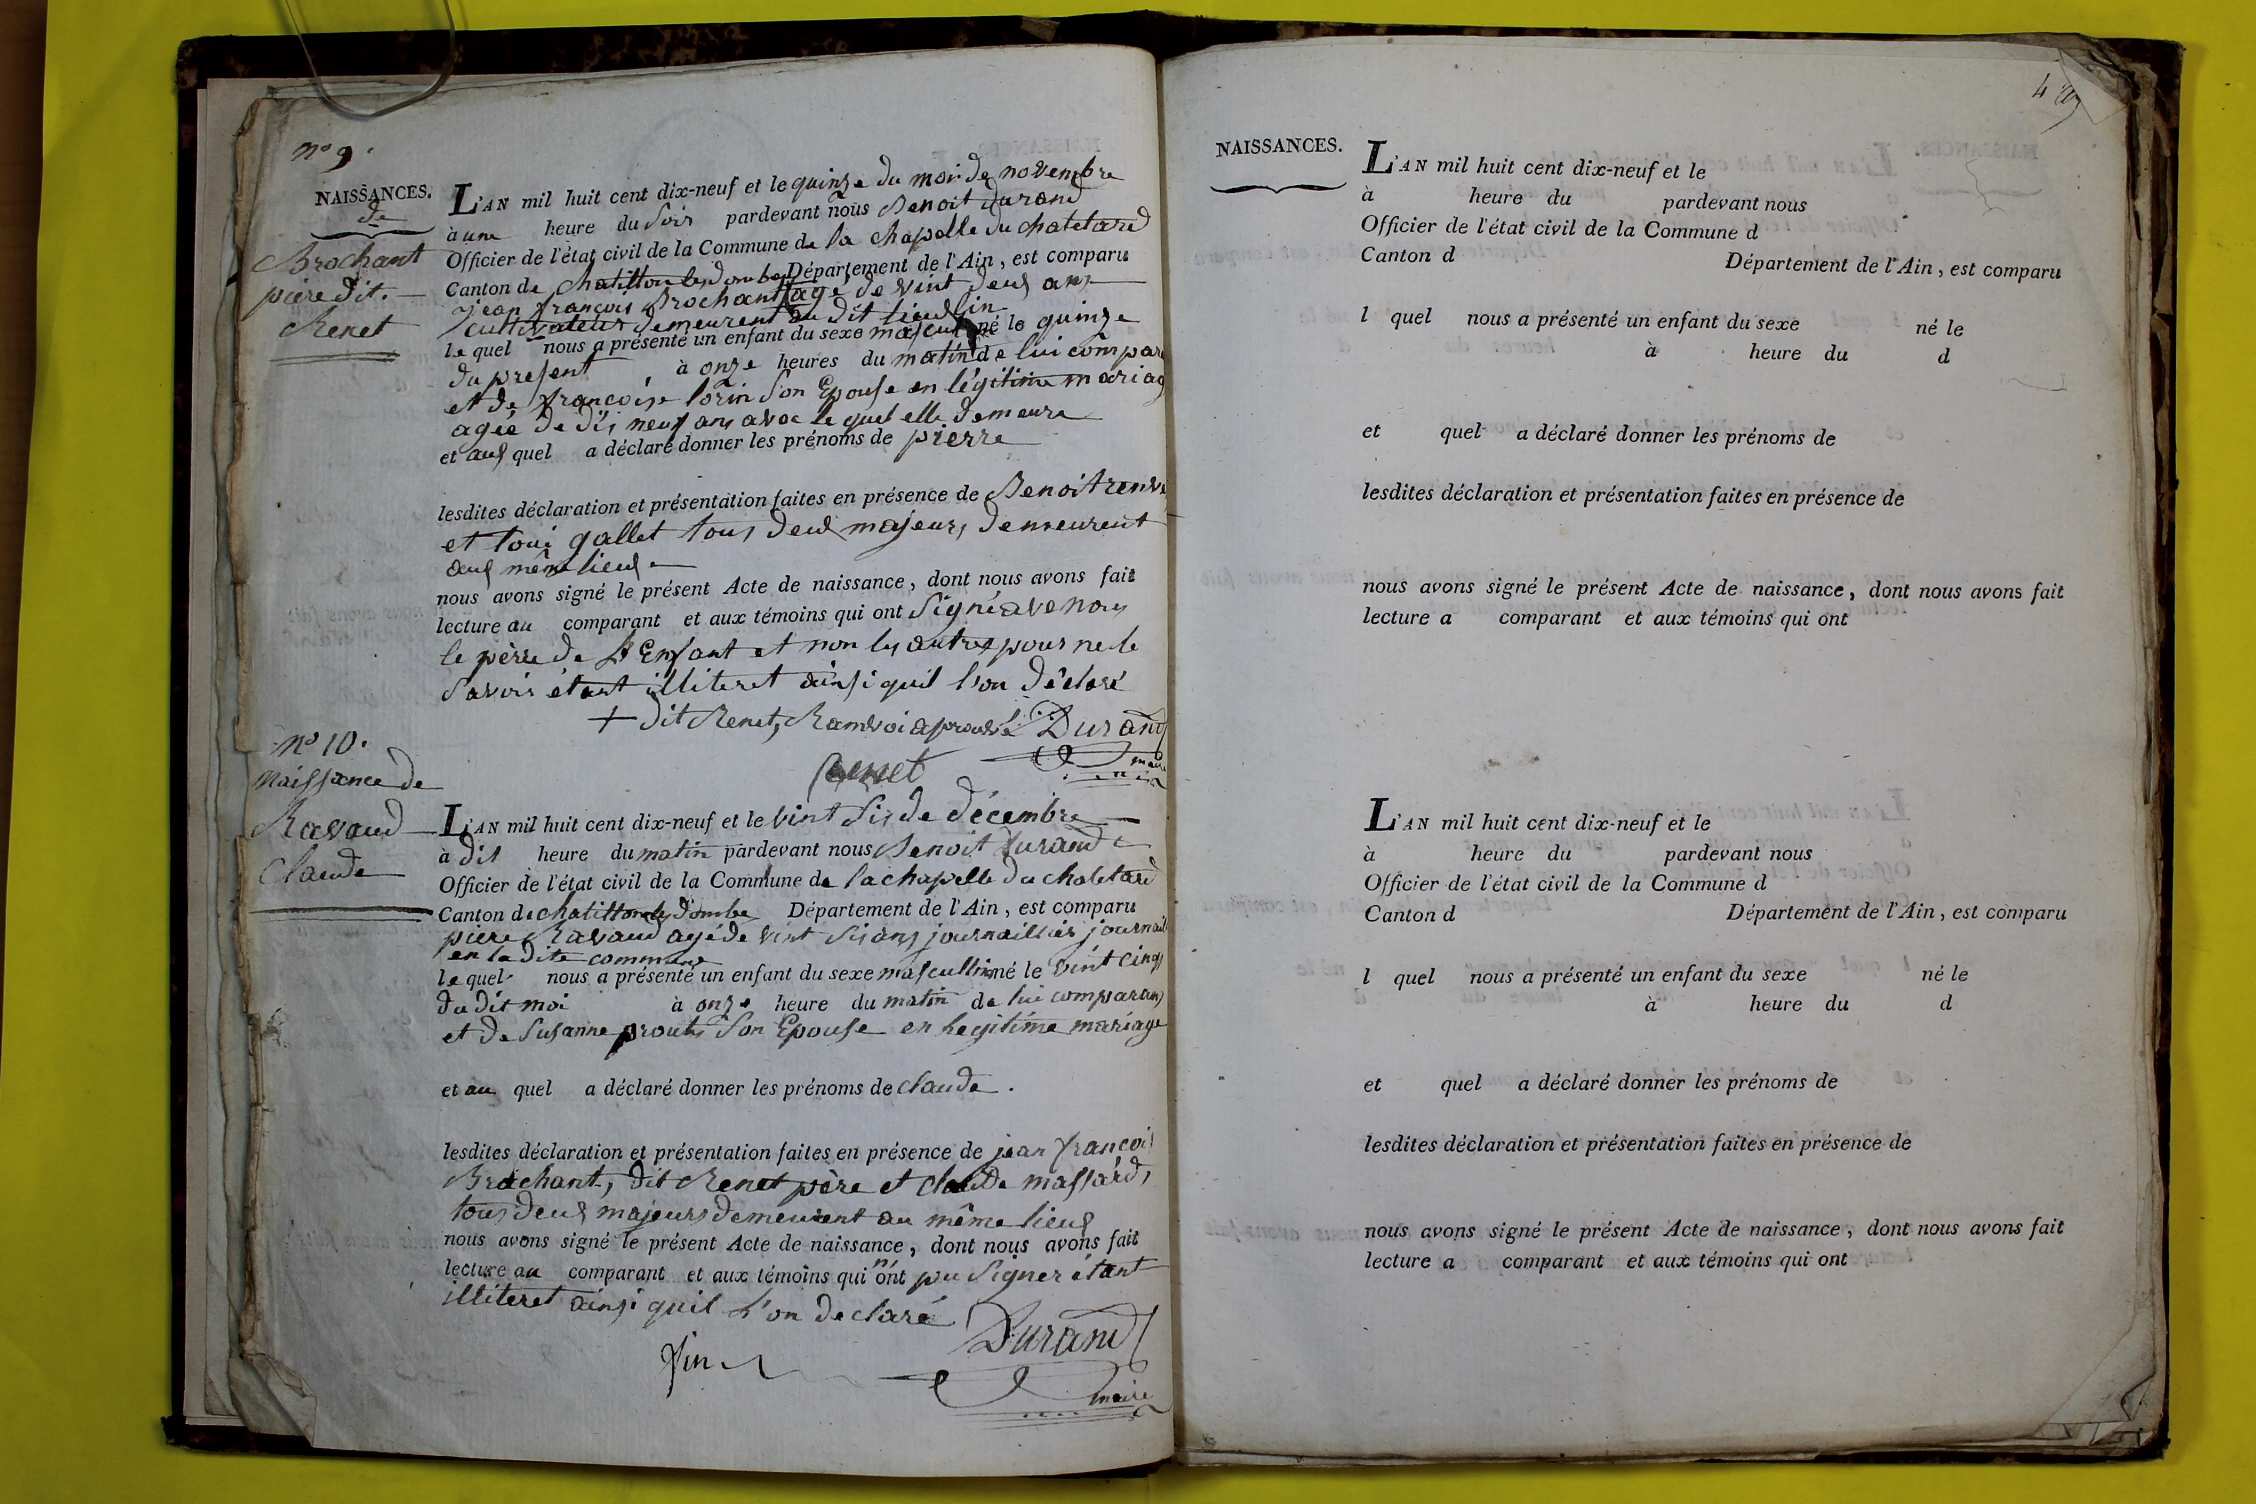 nº 9.
NAISSANCES.
de
Brochant
piere dit
Renet
L'AN mil huit cent dix-neuf et le quinze du moi de novembre
à une heure du soir pardevant nous Benoit durand
Officier de l'état civil de la Commune de la chapelle du chatelard
Canton de chatillon les dombes Département de l'Ain, est comparu
jean françois Brochant + agé de vint deux ans
cultivateur demeurent au dit lieu
le quel nous a présenté un enfant du sexe masculin né le quinze
du present à onze heures du matin de lui compara
et de françoise lorin son Epouse en légitime mariag
agée de dis neuf ans avec le quel elle demeure
et auq quel a déclaré donner les prénoms de pierre
lesdites déclaration et présentation faites en présence de Benoit
et loui gallet tous deux majeurs demeurent
aux même lieux
nous avons signé le présent Acte de naissance, dont nous avons fait
lecture au comparant et aux témoins qui ont signé ave nous
le père de l'Enfant et non les autres pour ne le
savoir étant illiteret ainsi quil l'on déclaré
+ dit Renet, Ramvoi aprouvé Durand
maire
Renet
nº 10.
Naissance de
Ravaud
Claude
L'AN mil huit cent dix-neuf et le vint sis de décembre
à dis heure du matin pardevant nous Benoit durand
Officier de l'état civil de la Commune de la chapelle du chatelard
Canton de chatillon les dombe Département de l'Ain, est comparu
piere Ravaud agé de vint sis ans journaillier
en la dite commune
le quel nous a présenté un enfant du sexe masculin né le vint cinq
du dit moi à onze heure du matin de lui comparant
et de Susanne prout son Epouse en legitime mariage
et au quel a déclaré donner les prénoms de claude.
lesdites déclaration et présentation faites en présence de jean françoi
Brochant, dit Renet père et claude massard,
tous deux majeurs demeurent au même lieux
nous avons signé le présent Acte de naissance, dont nous avons fait
lecture au comparant et aux témoins qui n'ont pu signer étant
illiteret ainsi quil l'on declaré
Durand
fin
maire
4
NAISSANCES.
L'AN mil huit cent dix-neuf et le
à heure du pardevant nous
Officier de l'état civil de la Commune d
Canton d Département de l'Ain, est comparu
l quel nous a présenté un enfant du sexe né le
à heure du d
et quel a déclaré donner les prénoms de
lesdites déclaration et présentation faites en présence de
nous avons signé le présent Acte de naissance, dont nous avons fait
lecture a comparant et aux témoins qui ont
L'AN mil huit cent dix-neuf et le
à heure du pardevant nous
Officier de l'état civil de la Commune d
Canton d Département de l'Ain, est comparu
l quel nous a présenté un enfant du sexe né le
à heure du d
et quel a déclaré donner les prénoms de
lesdites déclaration et présentation faites en présence de
nous avons signé le présent Acte de naissance, dont nous avons fait
lecture a comparant et aux témoins qui ont